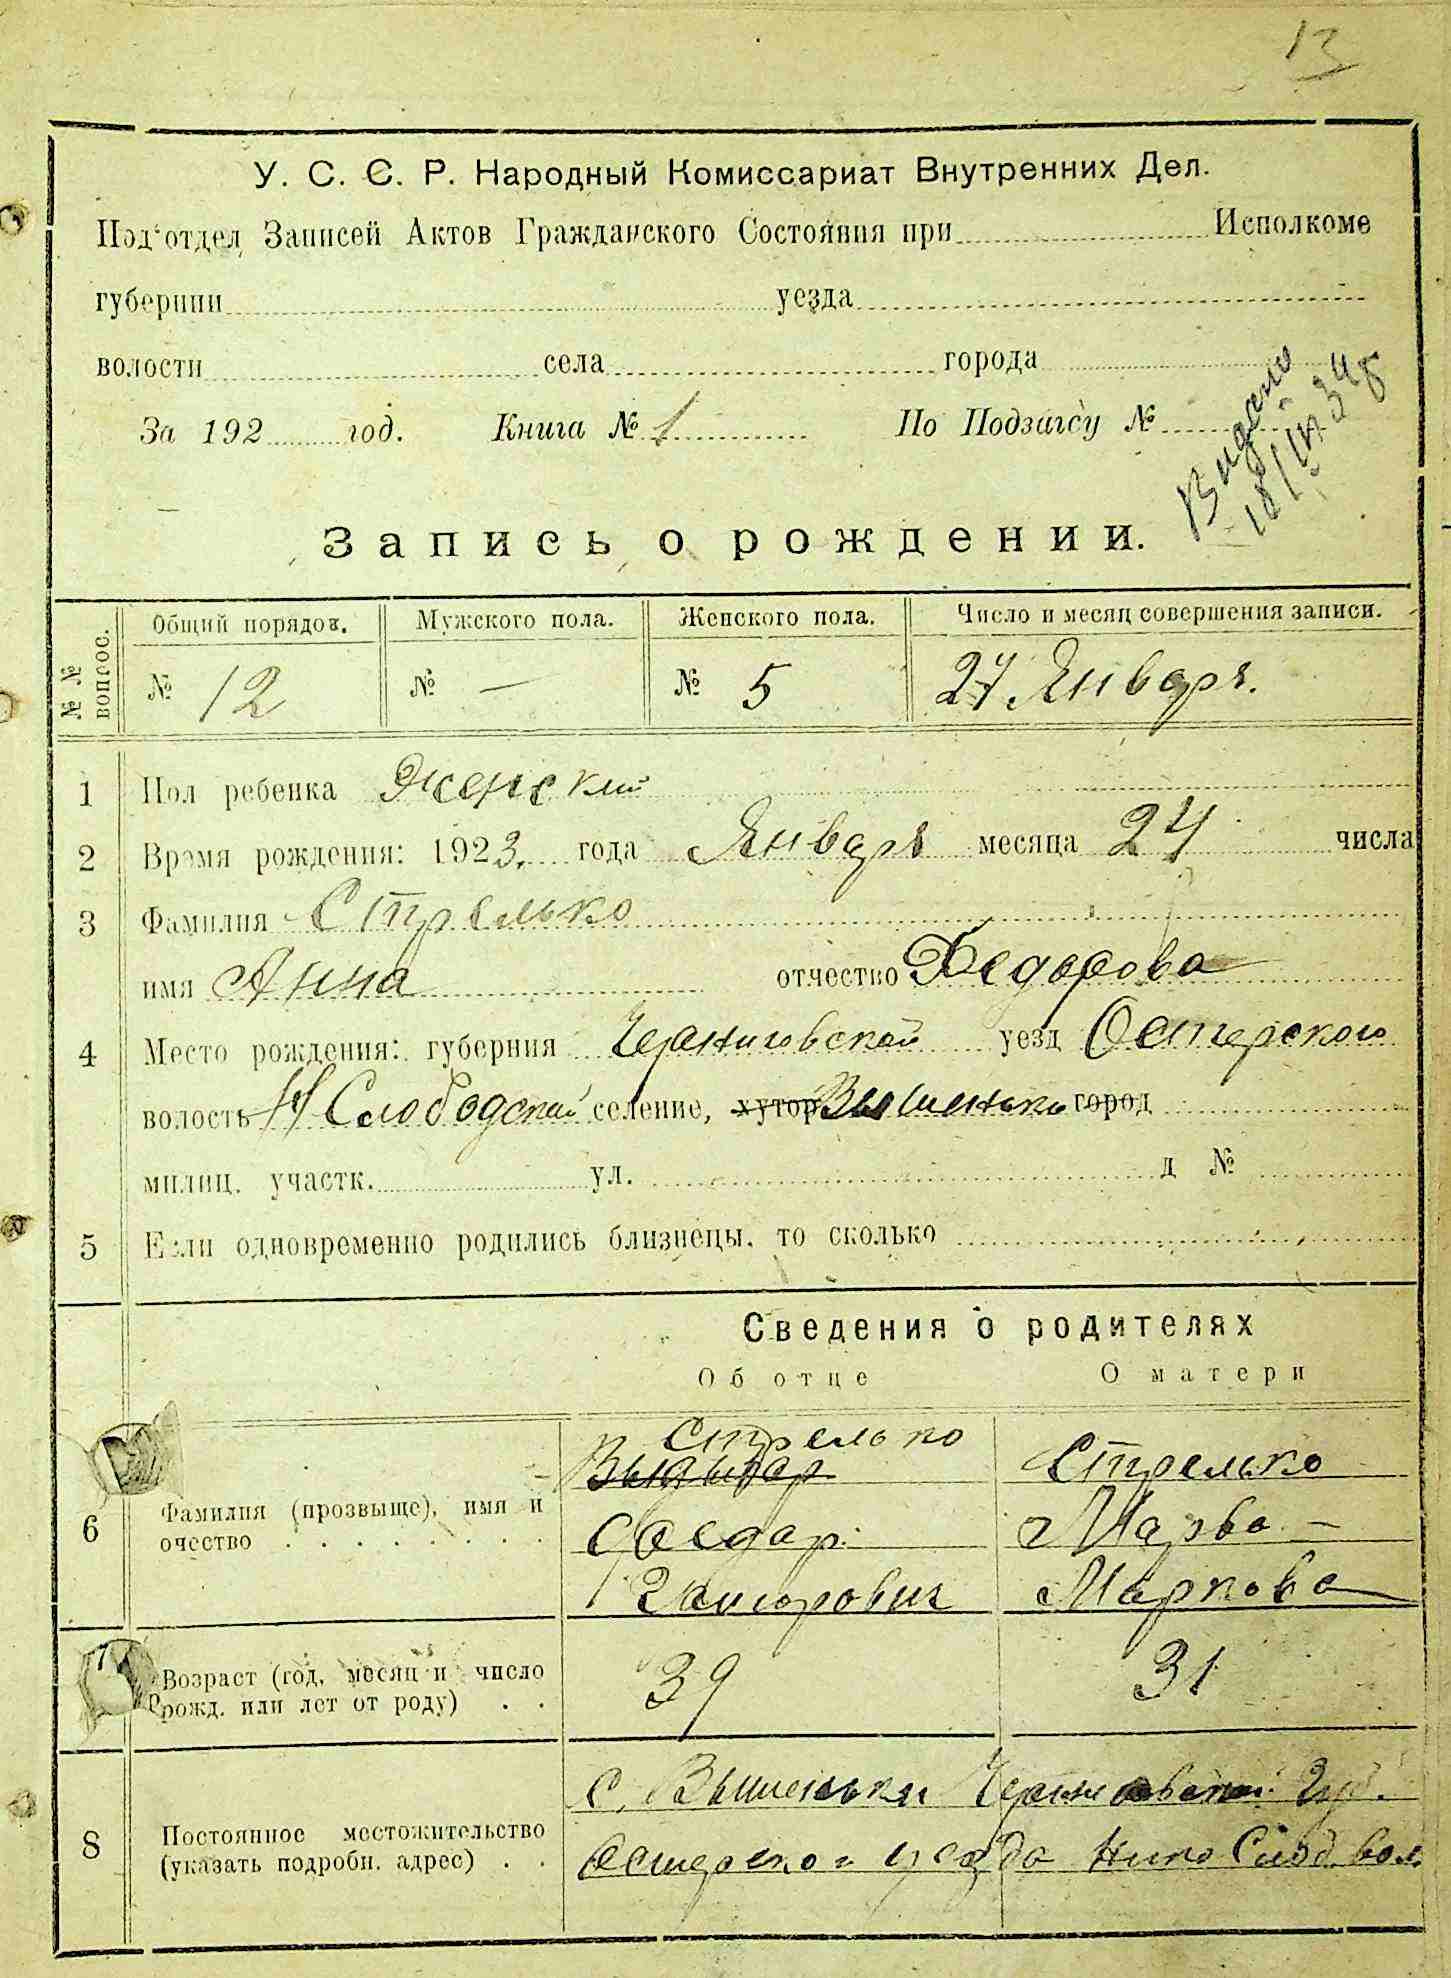 13
У. С. С. Р. Народный Комиссариат Внутренних Дел.
Под'отдел Записей Актов Гражданского Состояния при Исполкоме
губернии уезда
волости села города
За 192 год. Книга № 1 По Подзагсу №
Видано
Запись о рождении.
№ № вопрос. Общий порядов. Мужского пола. Женского пола. Число и месяц совершения записи.
№ 12 № — № 5 27 Января.
1 Пол ребенка Женский
2 Время рождения: 1923. года Января месяца 24 числа
3 Фамилия Стрелько
имя Анна отчество Федорова
4 Место рождения: губерния Черниговской уезд Остерского
волость Н Слободской селение, хутор Вышеньки город
милиц. участк. ул. д №
5 Если одновременно родились близнецы, то сколько
Сведения о родителях
Об отце О матери
Стрелько Стрелько
6 Фамилия (прозвыще), имя и
очество
Федор Марва —
Григорович Маркова
7 Возраст (год, месяц и число
рожд. или лет от роду) 39 31
С. Вышеньки Черниговской Губ.
8 Постоянное местожительство
(указать подробн. адрес)
Остерского уезда Нико Слод. вол.